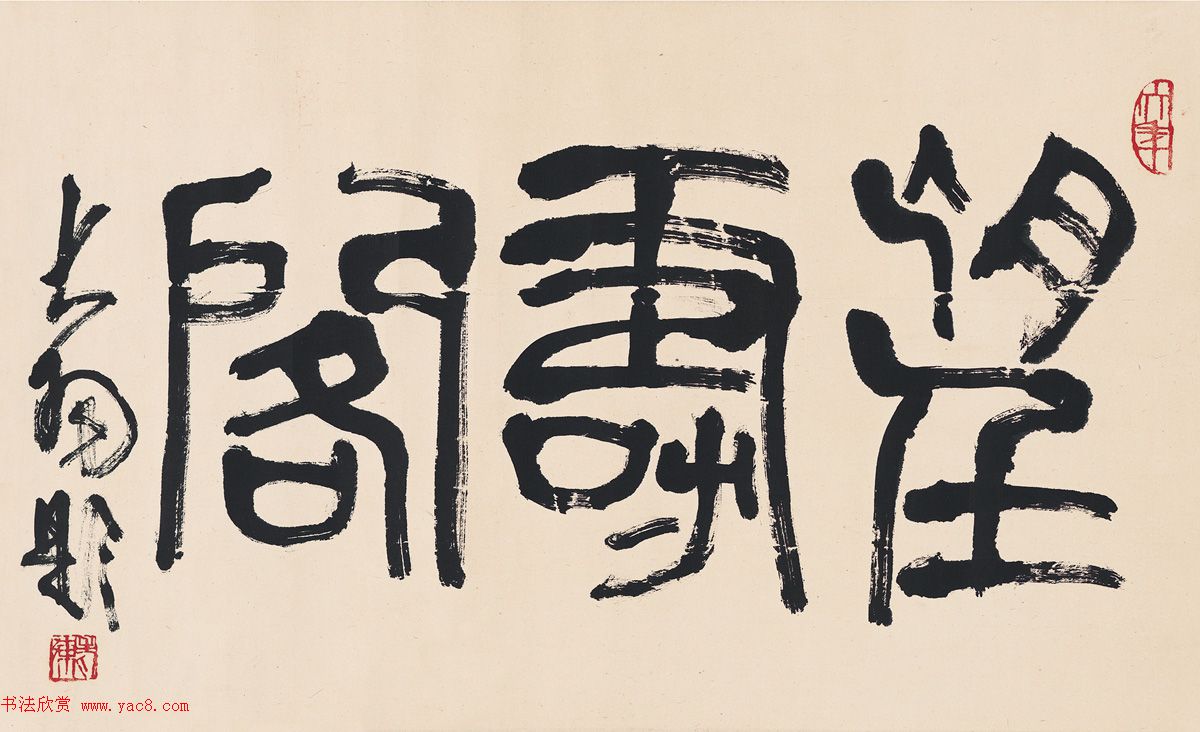 望壽閣
大羽題
书法欣赏 www.yac8.com